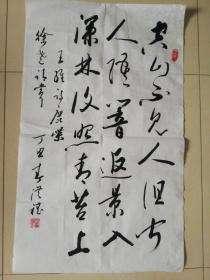 空山不见人但闻
人语響返景入
深林复照青苔上
王维诗鹿柴
丁丑春